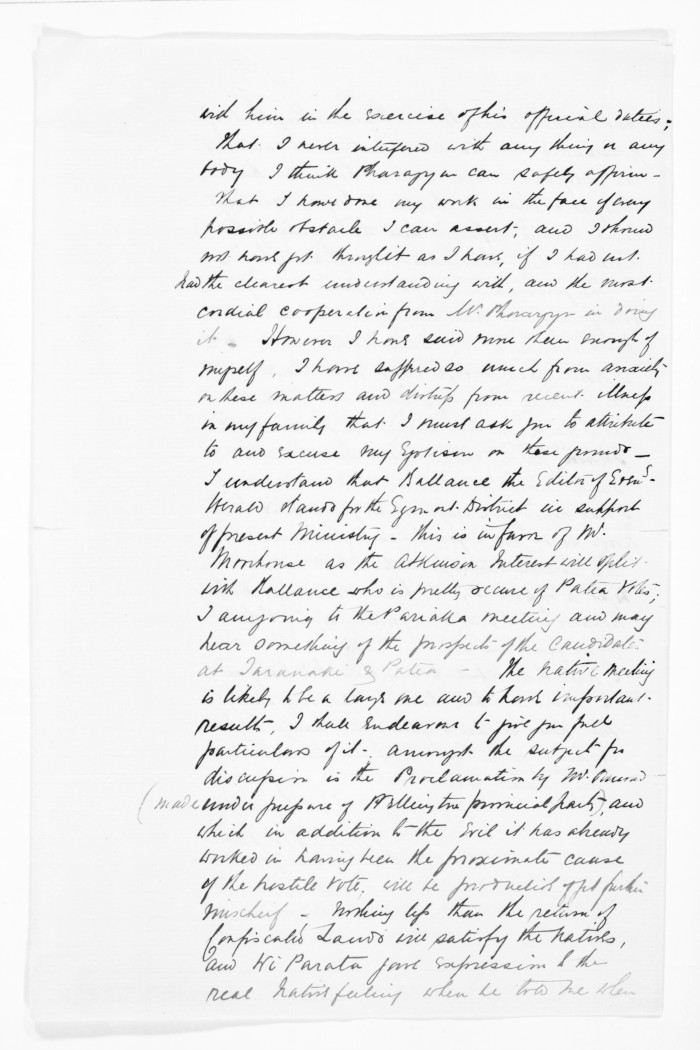 with him in the exercise of his official duties;
that I never interfered with any thing or any
body I think Pharazyn can safely affirm -
that I have done my work in the face of every
possible obstacle I can assert, and I should
not have got through it as I have, if I had not
had the clearest understanding with, and the most
cordial cooperation from Mr. Pharazyn in doing
it - However I have said more than enough of
myself, I have suffered so much from anxiety
on these matters and distress from recent illness
in my family that I must ask you to attribute
to and excuse my Egotism on these grounds -
I understand that Ballance the Editor of Eveng.
Herald stands for the Egmont District in support
of present Ministry - this is in favor of Mr.
Moorhouse as the Atkinson Interest will split
with Ballance who is pretty secure of Patea Votes;
I am going to the Pariaka meeting and may
hear something of the prospects of the Candidates
at Taranaki & Patea - The native meeting
is likely to be a large one and to have important
results, I shall Endeavour to give you full
particulars of it -, amongst the subjects for
discussion is the Proclamation by Mr.
(made under pressure of Wellington provincial party), and
which in addition to the Evil it has already
worked in having been the proximate cause
of the hostile vote, will be productive of yet further
mischief - Nothing less than the return of
Confiscated Lands will satisfy the Natives,
and Wi Parata gave expression to the
real Native feeling when he told me when